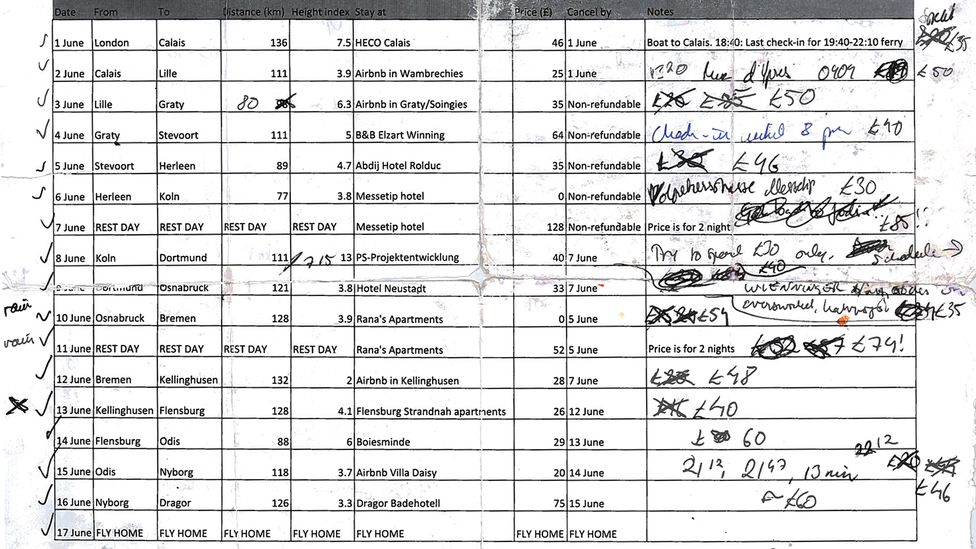 Date From To Distance (km) Height index Stay at Price (£) Cancel by Notes
1 June London Calais 136 7.5 HECO Calais 46 1 June Boat to Calais. 18:40: Last check-in for 19:40-22:10 ferry £35
2 June Calais Lille 111 3.9 Airbnb in Wambrechies 25 1 June Rue d'Ypres 0909 £50
3 June Lille Graty 80 6.3 Airbnb in Graty/Soingies 35 Non-refundable £50
4 June Graty Stevoort 111 5 B&B Elzart Winning 64 Non-refundable Check-in until 8 pm £90
5 June Stevoort Herleen 89 4.7 Abdij Hotel Rolduc 35 Non-refundable £30 £46
6 June Herleen Koln 77 3.8 Messetip hotel 0 Non-refundable £30
7 June REST DAY REST DAY REST DAY REST DAY Messetip hotel 128 Non-refundable Price is for 2 night £85!!
8 June Koln Dortmund 111 13 PS-Projektentwicklung 40 7 June Try to spend £30 only.
9 June Dortmund Osnabruck 121 3.8 Hotel Neustadt 33 7 June £40
rain 10 June Osnabruck Bremen 128 3.9 Rana's Apartments 0 5 June £54 £35
rain 11 June REST DAY REST DAY REST DAY REST DAY Rana's Apartments 52 5 June Price is for 2 nights £74!
12 June Bremen Kellinghusen 132 2 Airbnb in Kellinghusen 28 7 June £48
13 June Kellinghusen Flensburg 128 4.1 Flensburg Strandnah apartments 26 12 June £40
14 June Flensburg Odis 88 6 Boiesminde 29 13 June £ 60
2212
15 June Odis Nyborg 118 3.7 Airbnb Villa Daisy 20 14 June 2112, 2147, 13 min £20
£46
16 June Nyborg Dragor 126 3.3 Dragor Badehotell 75 15 June £60
17 June FLY HOME FLY HOME FLY HOME FLY HOME FLY HOME FLY HOME FLY HOME